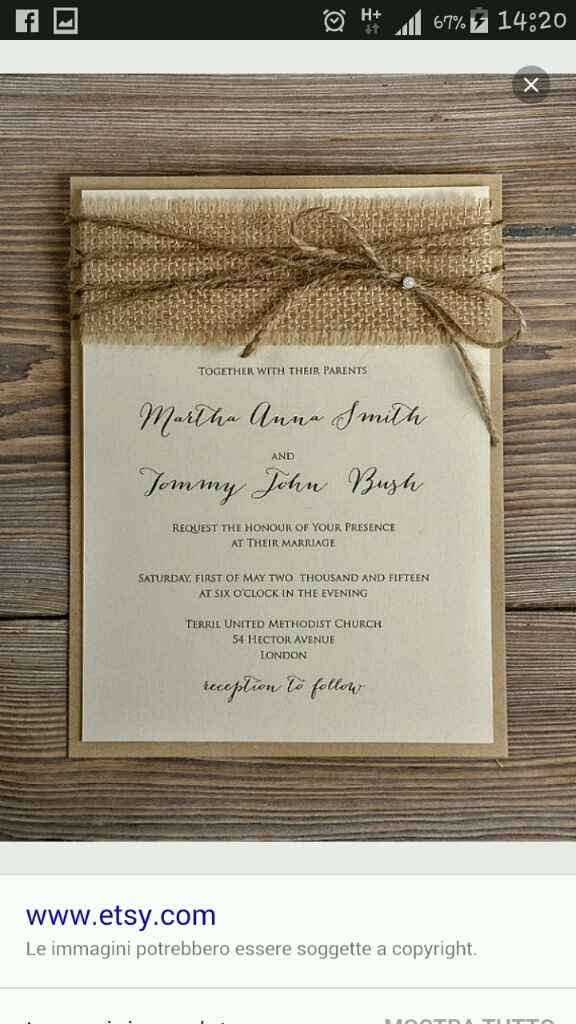 H+
67%
14:20
Together with their Parents
Martha Anna Smith
and
Tommy John Bush
Request the honour of Your Presence
at Their marriage
Saturday, first of May two thousand and fifteen
at six o'clock in the evening
Terril United Methodist Church
54 Hector Avenue
London
reception to follow
www.etsy.com
Le immagini potrebbero essere soggette a copyright.